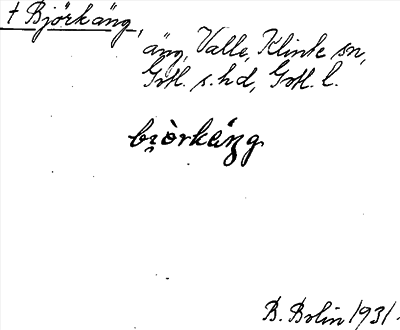 † Björkäng,
äng, Valle, Klinte sn,
Gotl. s. hd, Gotl. l.
bi̯òrkäŋg
B. Bolin 1931.